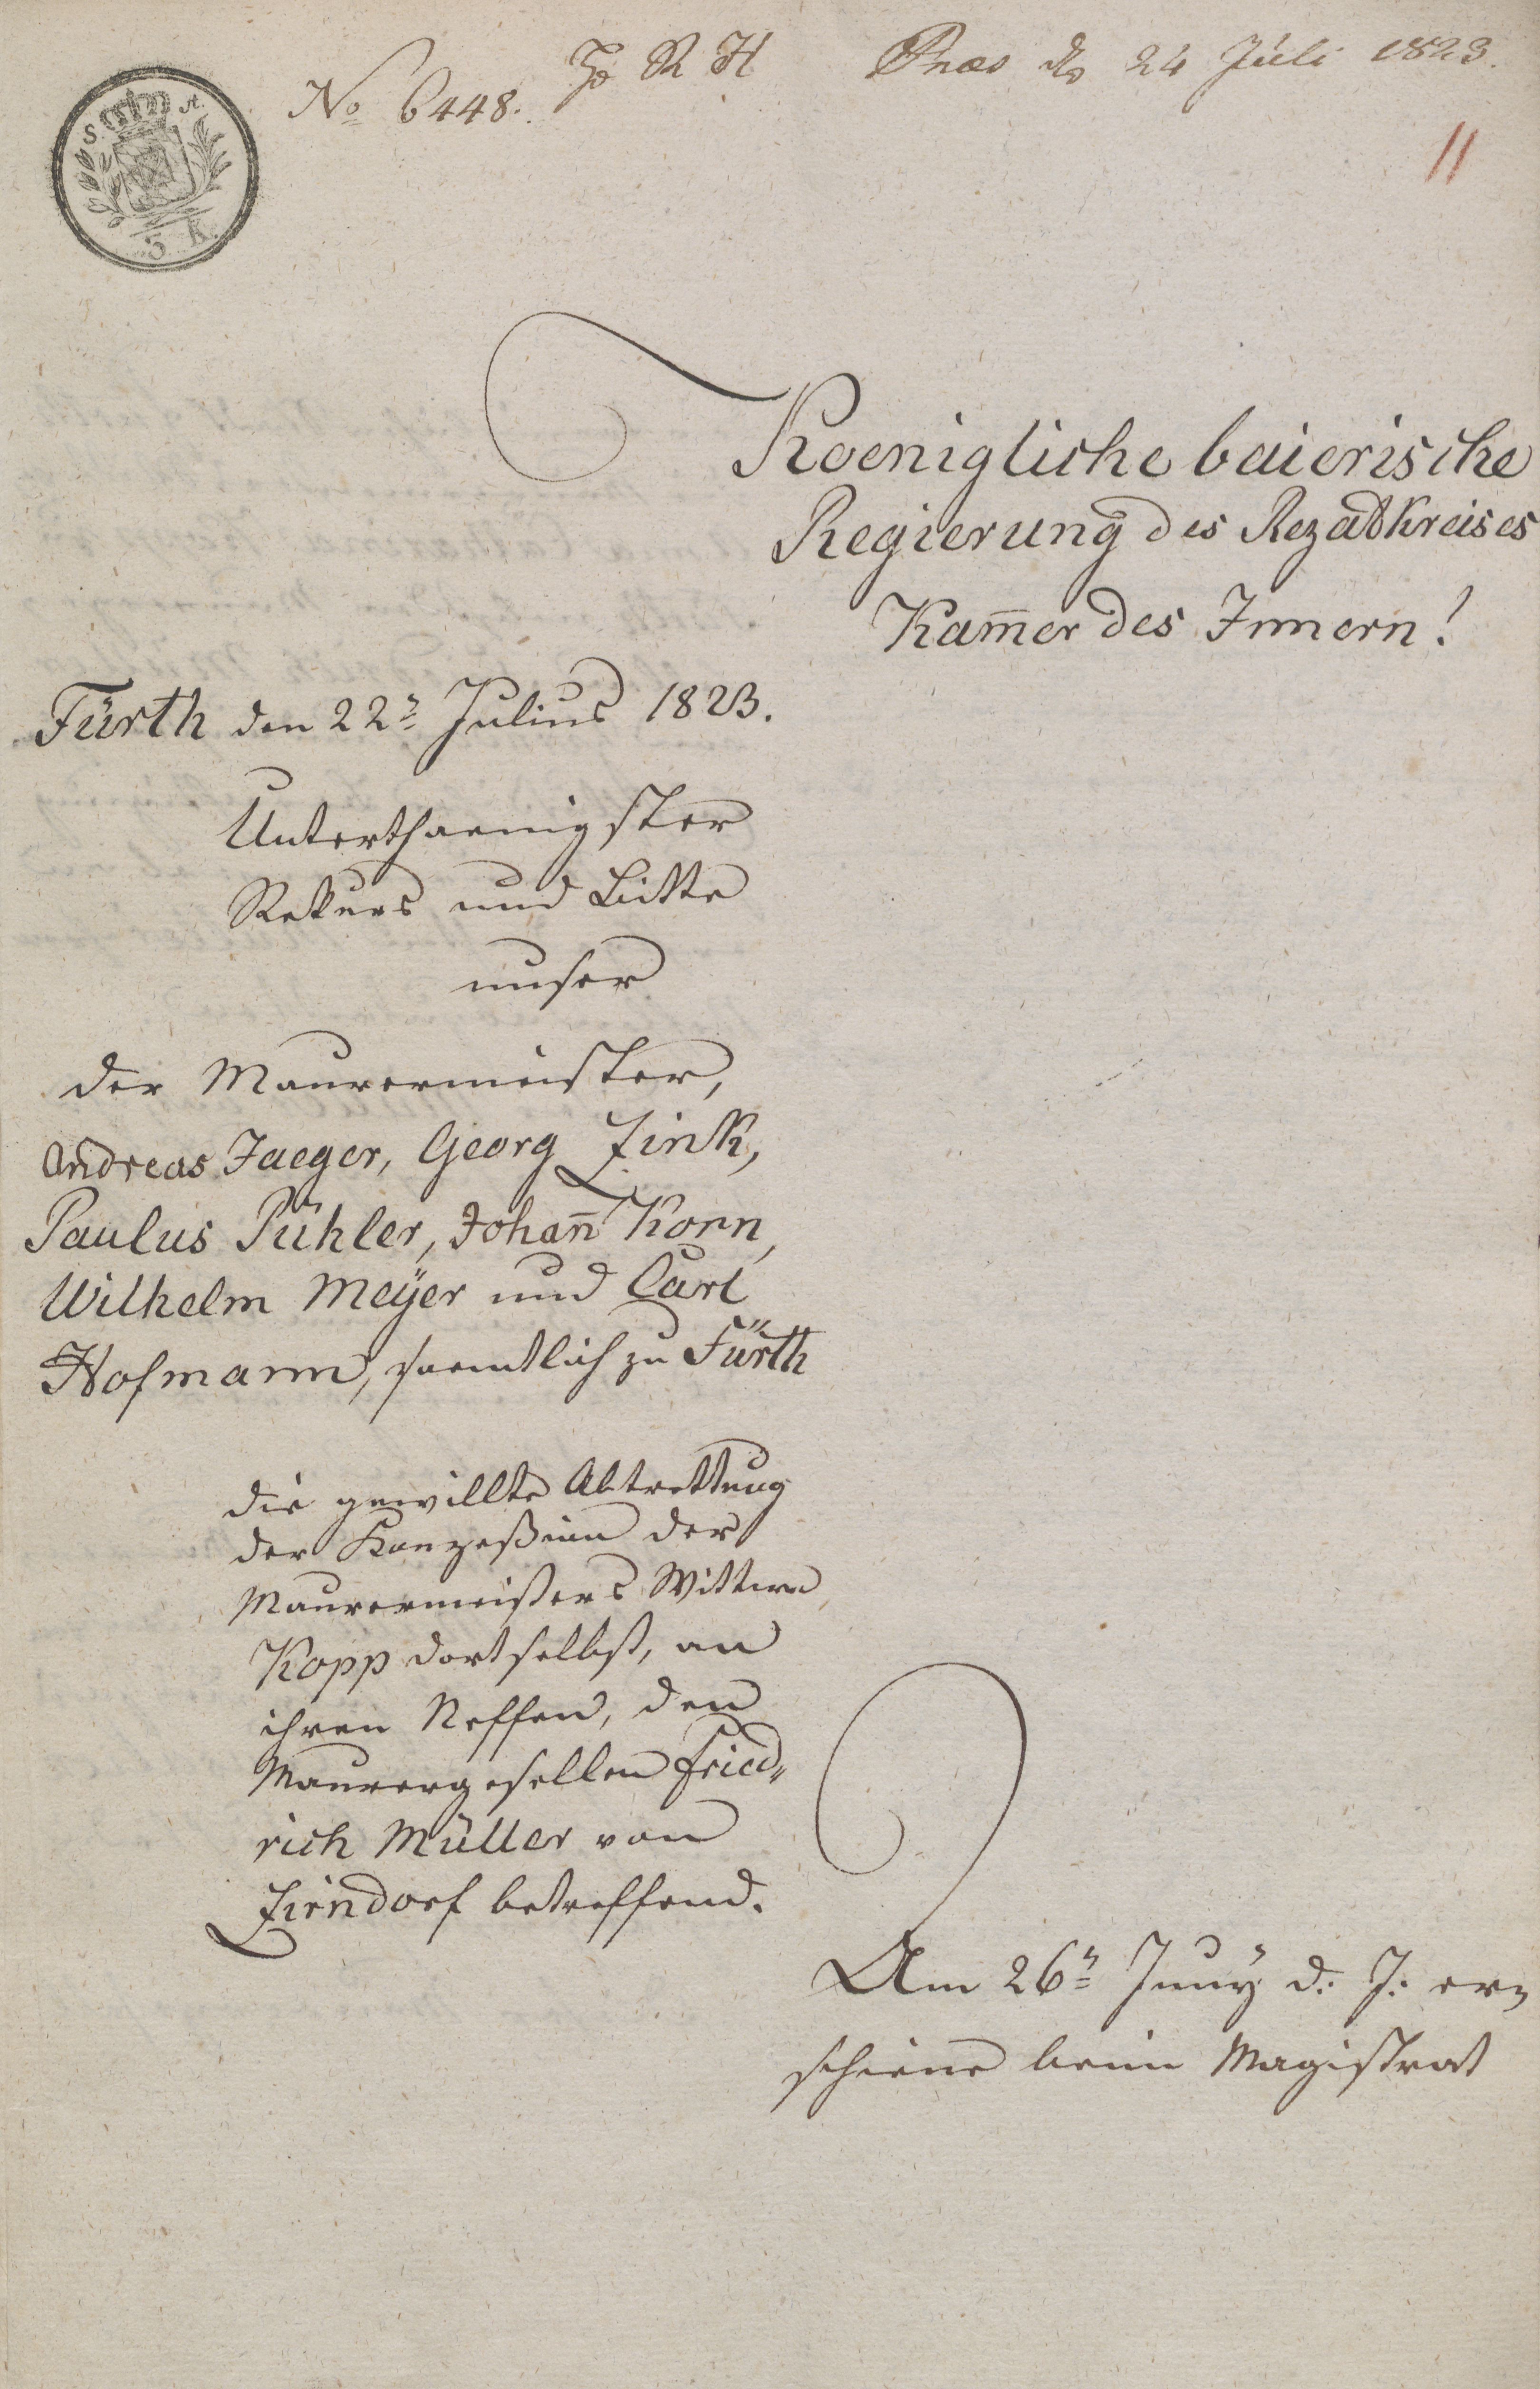 No 6448. R H Praes ds 24 Juli 1823.
11
S. A.
5 K.
Koenigliche baierische
Regierung des Rezatkreises
Kam̅er des Innern!
Fürth den 22n Julius 1823.
Unterthaenigster
Rekurs und Bitte
unser
der Maurermeister,
Andreas Jaeger, Georg Zink,
Paulus Pühler, Johan̅ Korn,
Wilhelm Meÿer und Carl
Hofmann, saemtlich zu Fürth
die gewillte Abtrettung
der Konzeßion der
Maurermeisters Wittwe
Kopp dortselbst, an
ihren Neffen, den
Maurergesellen Fried„
rich Müller von
Zirndorf betreffend.
Am 26n Junÿ d. J. er„
schiene beim Magistrat